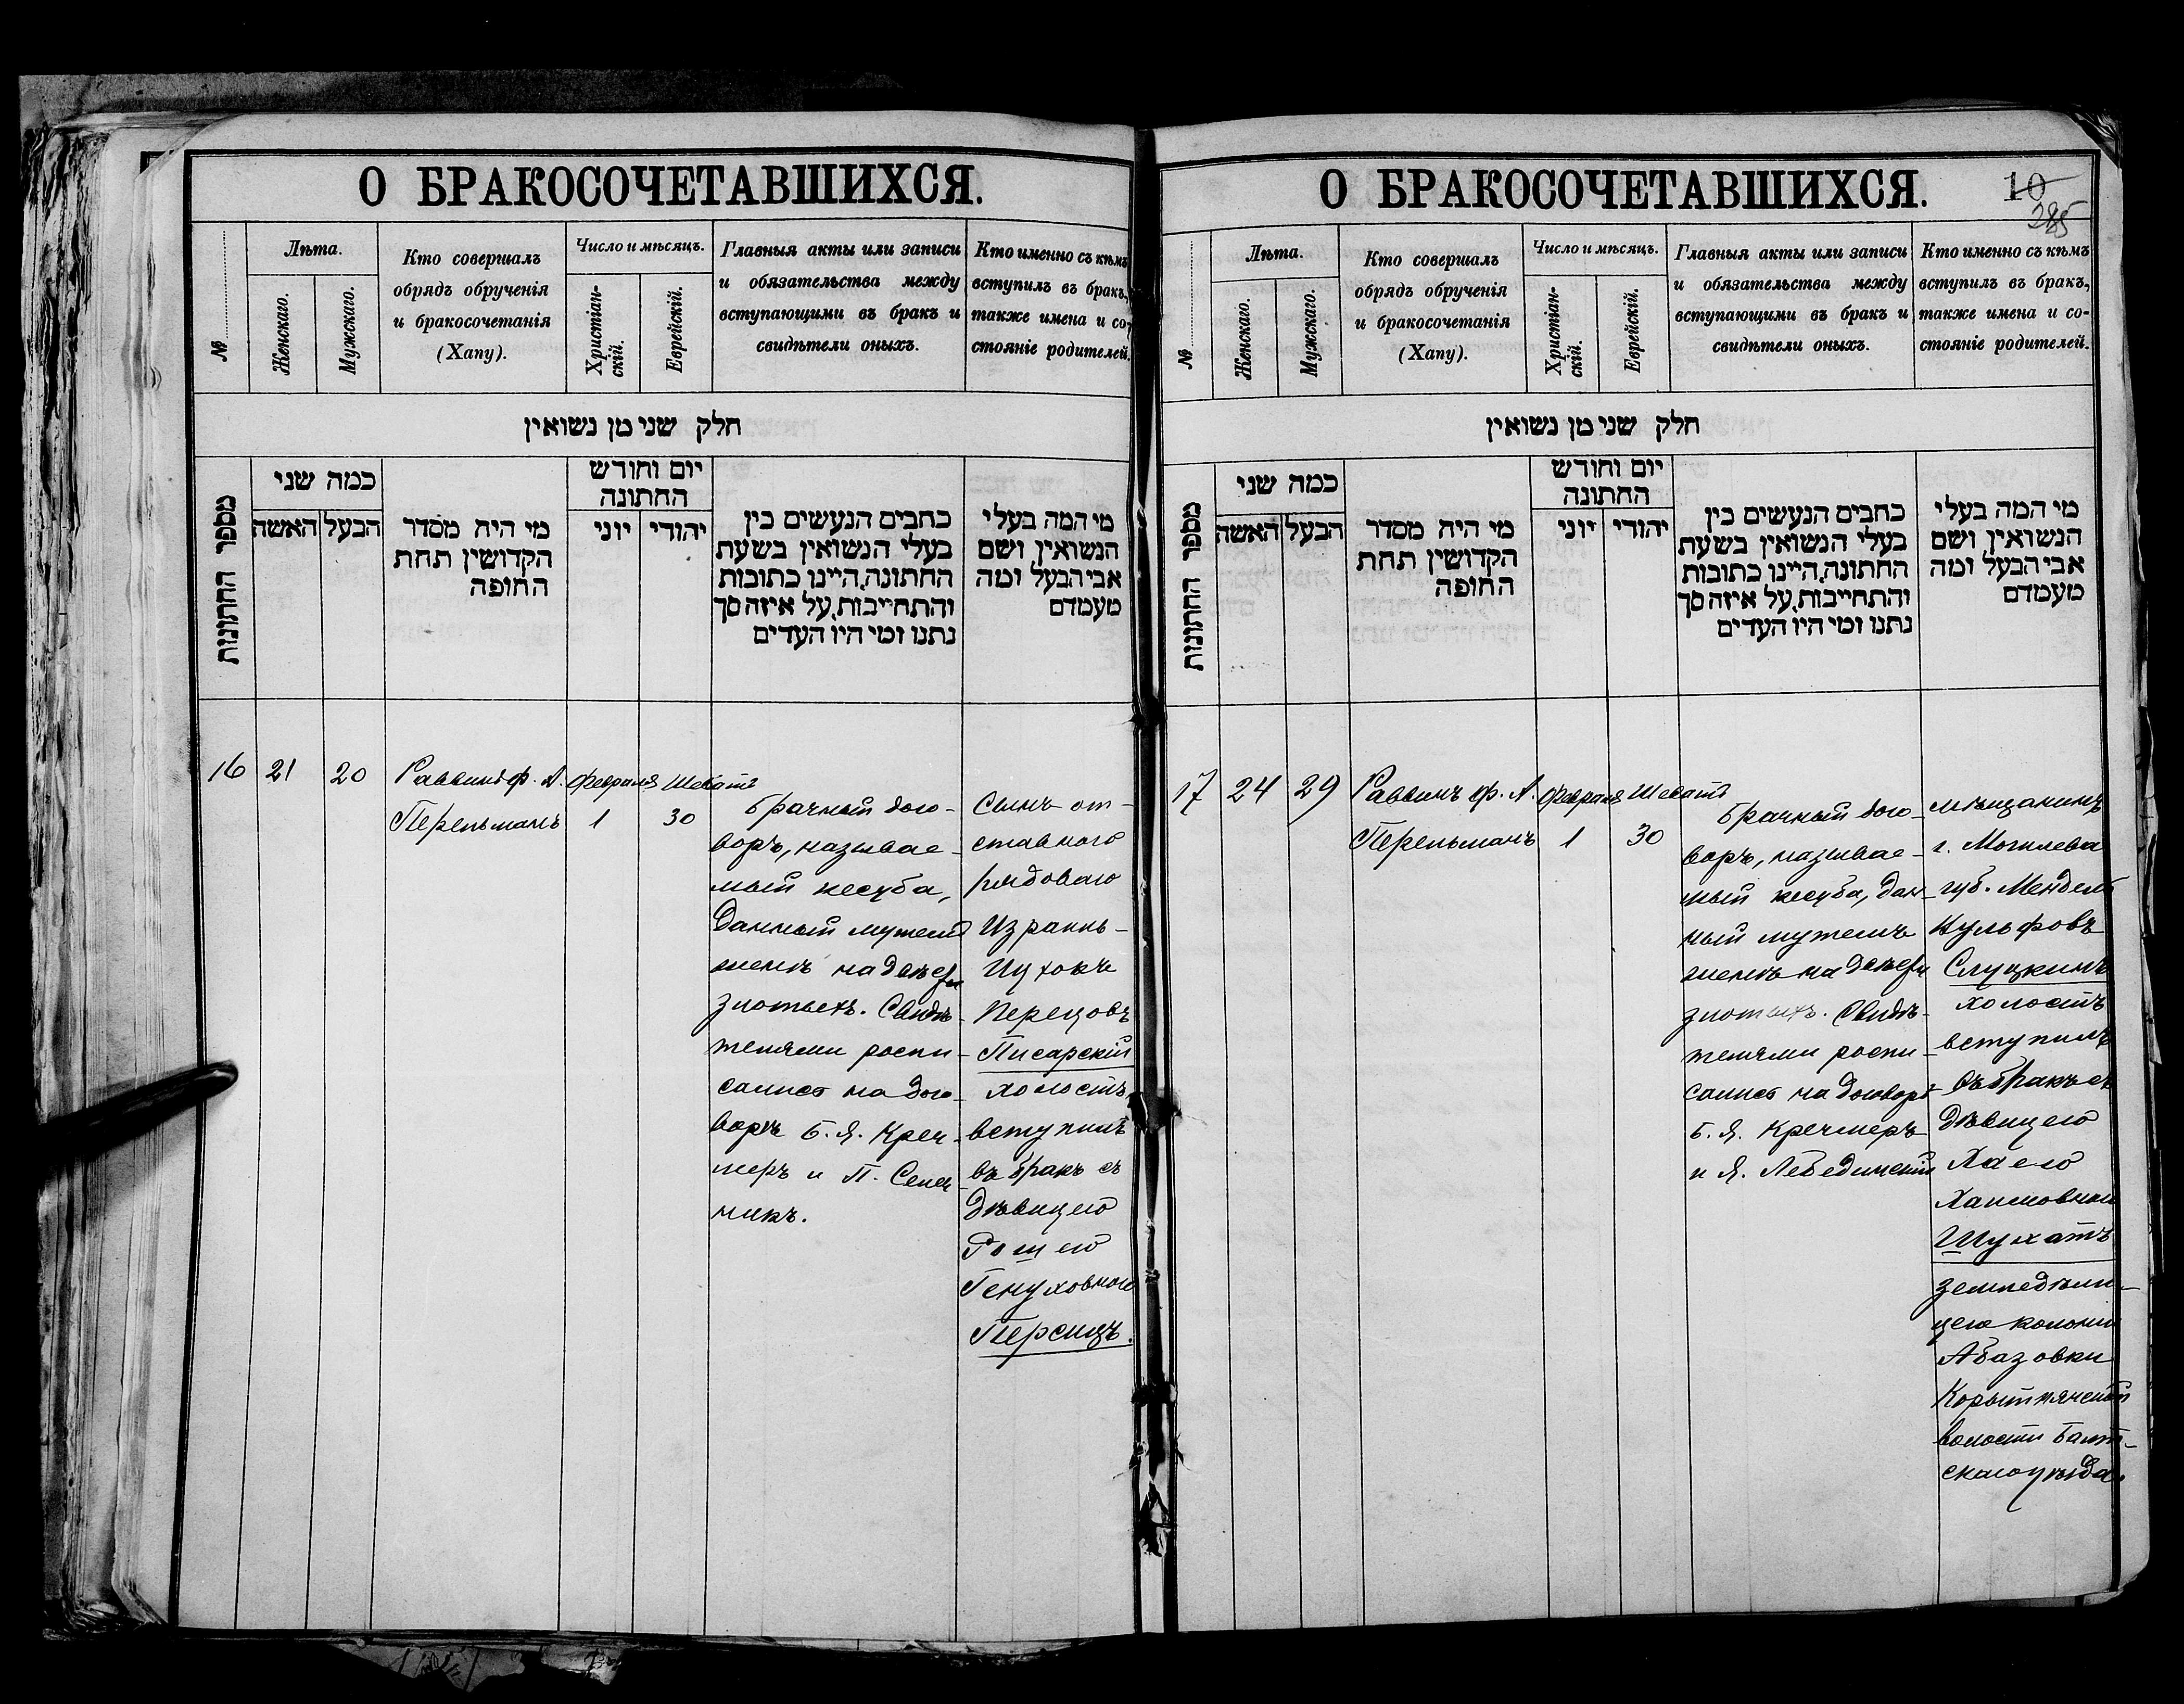 О БРАКОСОЧЕТАВШИХСЯ.
№
Лѣта.
Женскаго.
Мужскаго.
Кто совершалъ
обрядъ обрученія
и бракосочетанія
(Хапу).
Число и мѣсяцъ.
Христіан-
скій.
Еврейскій.
Главныя акты или записи
и обязательства между
вступающими въ бракъ и
свидѣтели оныхъ.
Кто именно съ кѣмъ
вступилъ въ бракъ,
также имена и со-
стояніе родителей.
חלק שני מן נשואין
מספר החתונות
כמה שני
האשה
הבעל
מי היה מסדר
הקדושין תחת
החופה
יום וחודש
החתונה
יוני
יהודי
כתבים הנעשים בין
בעלי הנשואין בשעת
החתונה, היינו כתובות
והתחייבות, על איזה סך
נתנו ומי היו העדים
מי המה בעלי
הנשואין ושם
אבי הבעל ומה
מעמדם
16
21
20
Раввинъ Ф. А.
Перельманъ
Февраля
1
Шеватъ
30
Брачный дого-
воръ, называе-
мый кесуба,
данный мужемъ
женѣ на
злотыхъ. Свидѣ-
телями распи-
сались на дого-
ворѣ Б. Я. Креч-
меръ и П.
никъ.
Сынъ от-
ставного
рядоваго
Израиль-
Ицхокъ
Перецовъ
Писарскій
холостъ
вступилъ
въ бракъ съ
дѣвицею
Генуховною
Персицъ.
О БРАКОСОЧЕТАВШИХСЯ.
10
285
№
Лѣта.
Женскаго.
Мужскаго.
Кто совершалъ
обрядъ обрученія
и бракосочетанія
(Хапу).
Число и мѣсяцъ.
Христіан-
скій.
Еврейскій.
Главныя акты или записи
и обязательства между
вступающими въ бракъ и
свидѣтели оныхъ.
Кто именно съ кѣмъ
вступилъ въ бракъ,
также имена и со-
стояніе родителей.
חלק שני מן נשואין
מספר החתונות
כמה שני
האשה
הבעל
מי היה מסדר
הקדושין תחת
החופה
יום וחודש
החתונה
יוני
יהודי
כתבים הנעשים בין
בעלי הנשואין בשעת
החתונה, היינו כתובות
והתחייבות, על איזה סך
נתנו ומי היו העדים
מי המה בעלי
הנשואין ושם
אבי הבעל ומה
מעמדם
17
24
29
Раввинъ Ф. А.
Перельманъ
Февраля
1
Шеватъ
30
Брачный дого-
воръ, называе-
мый кесуба, дан-
ный мужемъ
женѣ на
злотыхъ. Свидѣ-
телями распи-
сались на договорѣ
Б. Я. Кречмеръ
и Я. Лебединскій
мѣщанинъ
г. Могилева
губ. Мендель
Вульфовъ
Слуцкинъ
холостъ
вступилъ
въ бракъ съ
дѣвицею
Хаею
Хаимовною
Шухатъ
земледѣли-
цею колоніи
Абазовки
волости Балт-
скаго уѣзда.